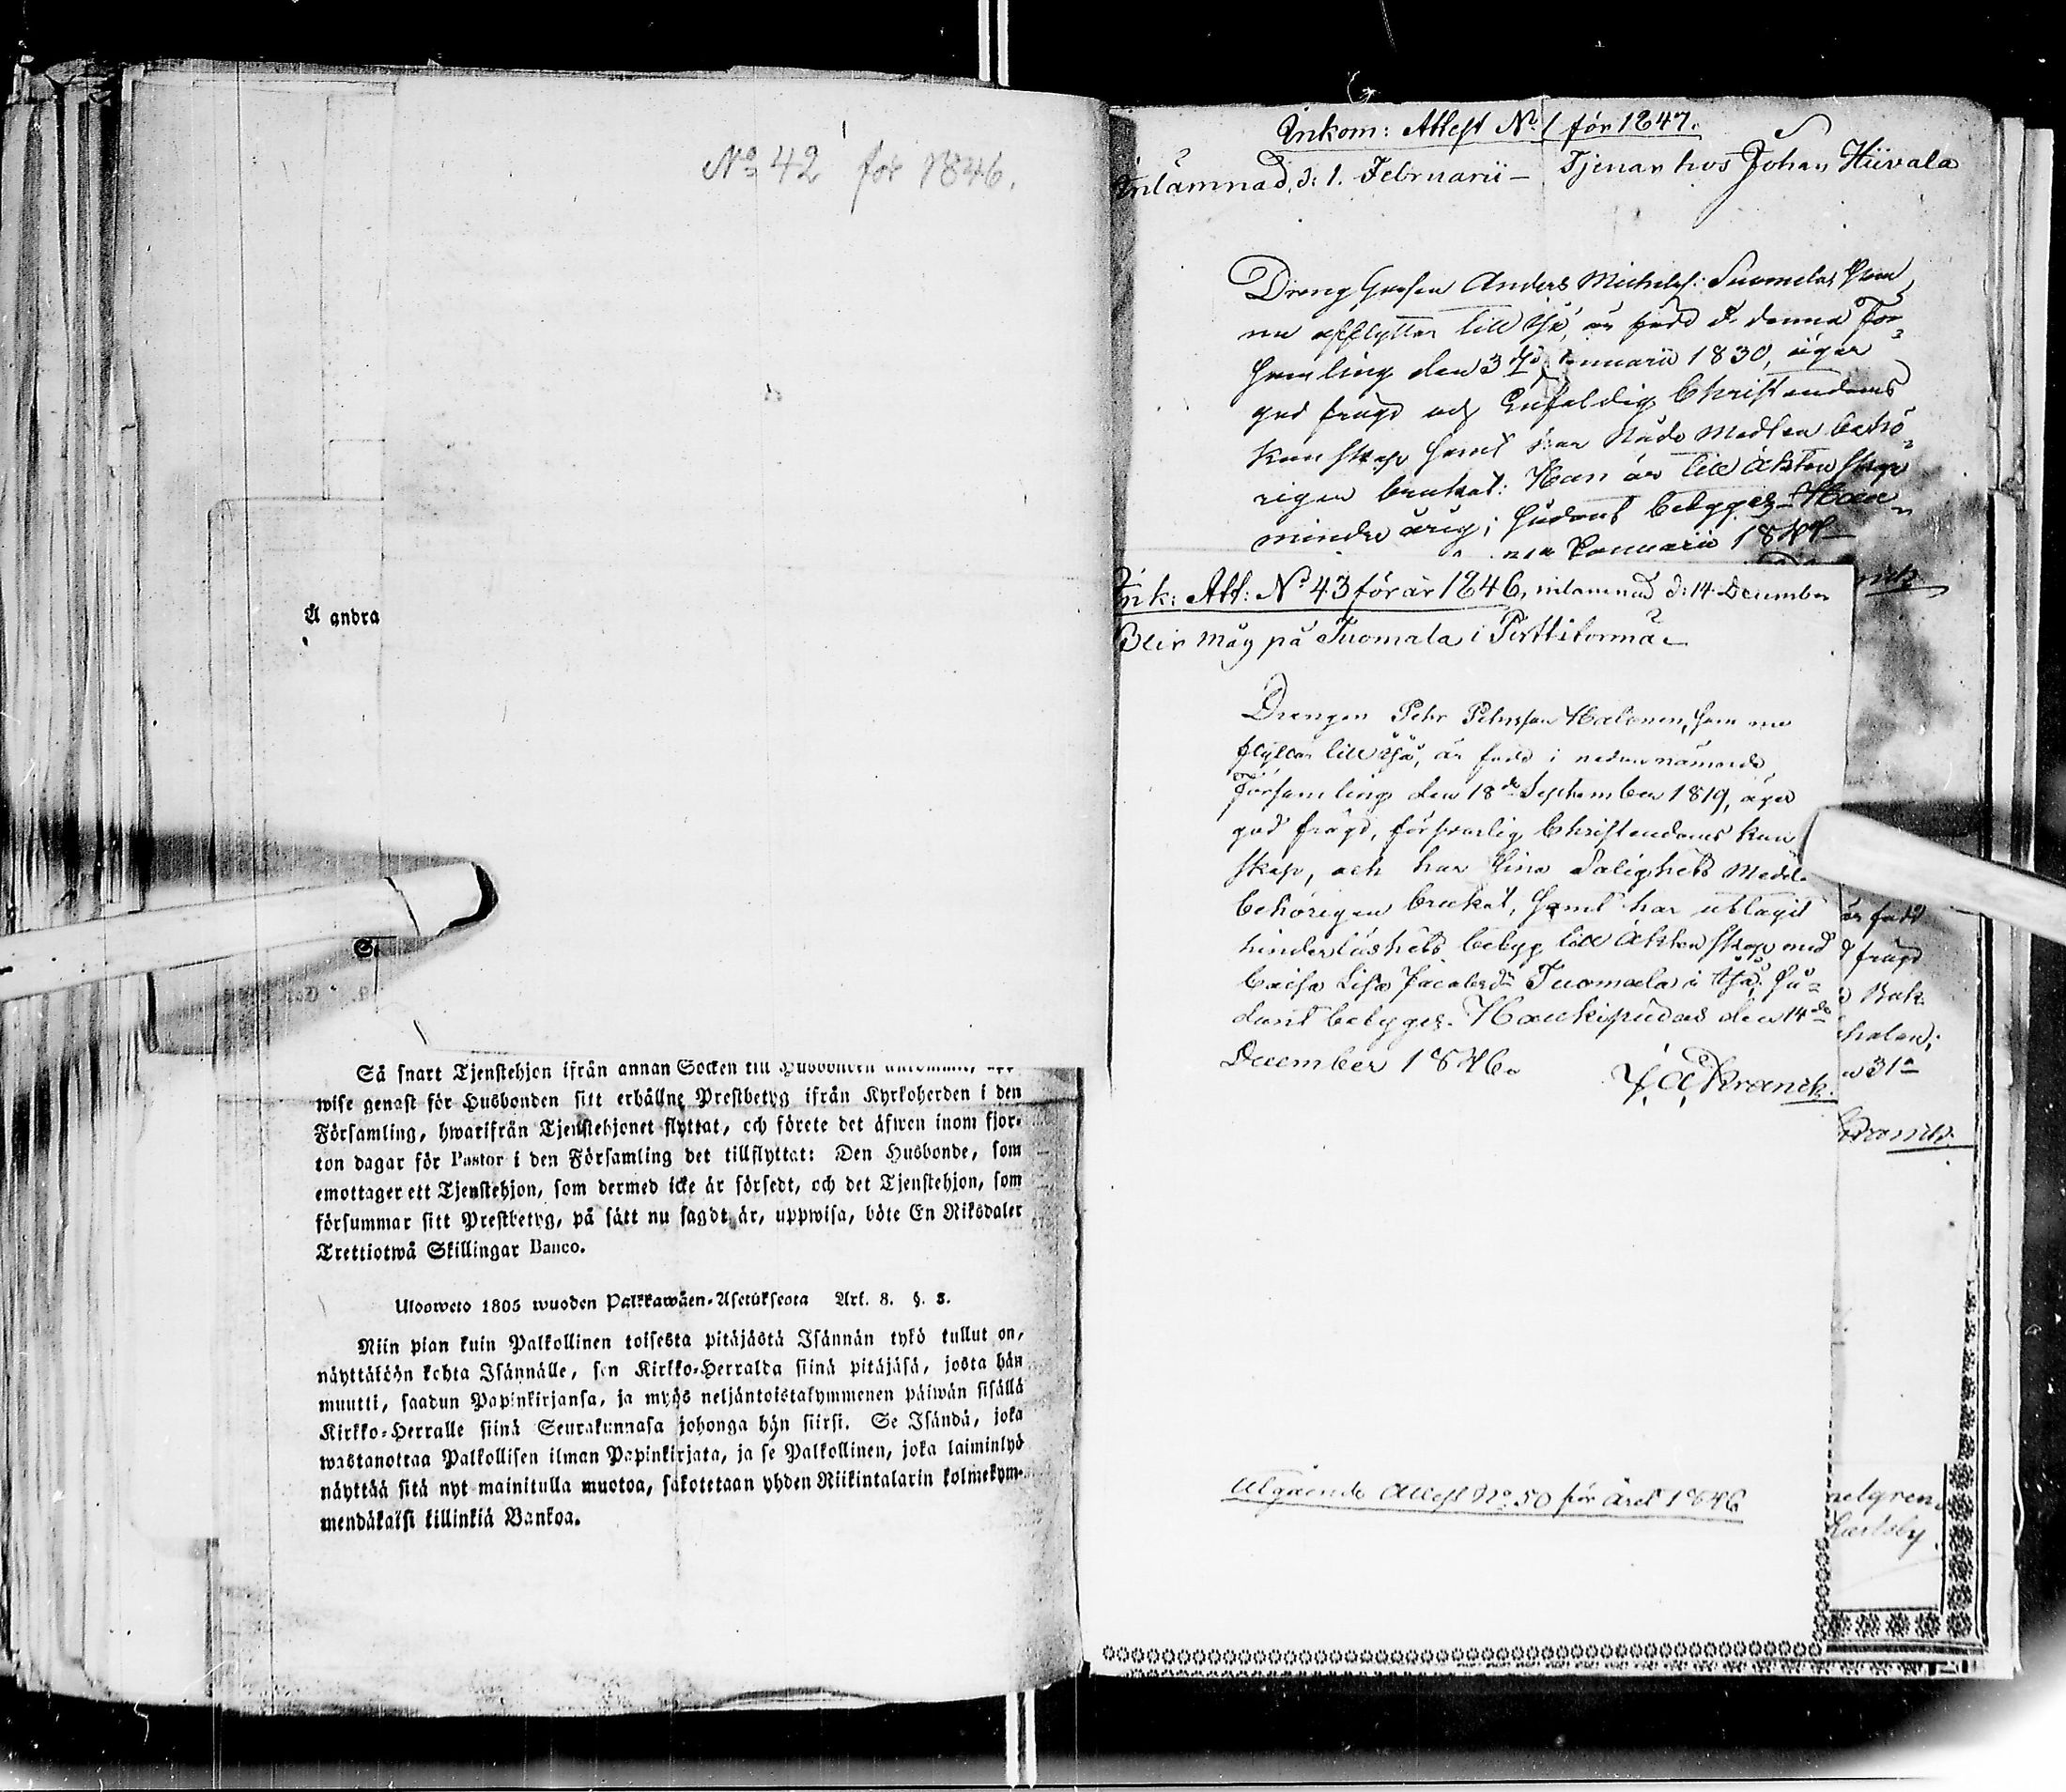 No 42 för 1846.
Å andra
S
Så snart Tjenstehjon ifrån annan Socken till Husbonden
wise genast för Husbonden sitt erhållne Prestbetyg ifrån Kyrkoherden i den
Församling, hwarifrån Tjenstehjonet flyttat, och förete det äfwen inom fjor-
ton dagar för Pastor i den Församling det tillflyttat: Den Husbonde, som
emottager ett Tjenstehjon, som dermed icke är försedt, och det Tjenstehjon, som
försummar sitt Prestbetyg, på sätt nu sagdt är, uppwisa, böte En Riksdaler
Trettiotwå Skillingar Banco.
Ulosweto 1805 wuoden Palkkawäen-Asetuksesta Art. 8. §. 8.
Niin pian kuin Palkollinen toisesta pitäjästä Isännän tykö tullut on,
näyttäköön kohta Isännälle, sen Kirkko-Herralda siinä pitäjäsä, josta hän
muutti, saadun Papinkirjansa, ja myös neljäntoistakymmenen päiwän sisällä
Kirkko-Herralle siinä Seurakunnasa johonga hän siirsi. Se Isändä, joka
wastanottaa Palkollisen ilman Papinkirjata, ja se Palkollinen, joka laiminlyö
näyttää sitä nyt mainitulla muotoa, sakotetaan yhden Riikintalarin kolmekym-
mendäkaksi killinkiä Bankoa.
Inkom: Attest No 1 för 1847.
Inlämnad. d: 1. Februarii – Tjenar hos Johan Hiivala
Dreng Gossen Anders Michelss: Suomela, som
nu afflyttar till Ijo, är född i denna För-
samling den Januarii 1830, äger
god frägd och Enfaldig Christendoms
kunskap samt har Nåde Medlen behö-
rigen brukat: Han är till äktenskap
minde årig; sådant betygges
Januarii 1847
Ink: Att: No 43 för år 1846, inlämnad d: 14 December
Blir måg på Tuomala i Pirttitörmä –
Drengen Pehr Pehrsson Halonen, som nu
flyttar till Ijo, är född i nedannämnde
Församling den 18de September 1819, äger
god frägd, försvarlig Christendoms kun
skap, och har sina Salighets Medel
behörigen brukat, samt har uttagit
hinderlöshets betyg till äktenskap med
Caisa Lisa Jacobsdr Tuomala i Ijo; så-
dant betyges. Haukipudas den 14de
December 1846.
J. A. Franck.
är född
frägd
31a
Utgående Attest No 50 för året 1846